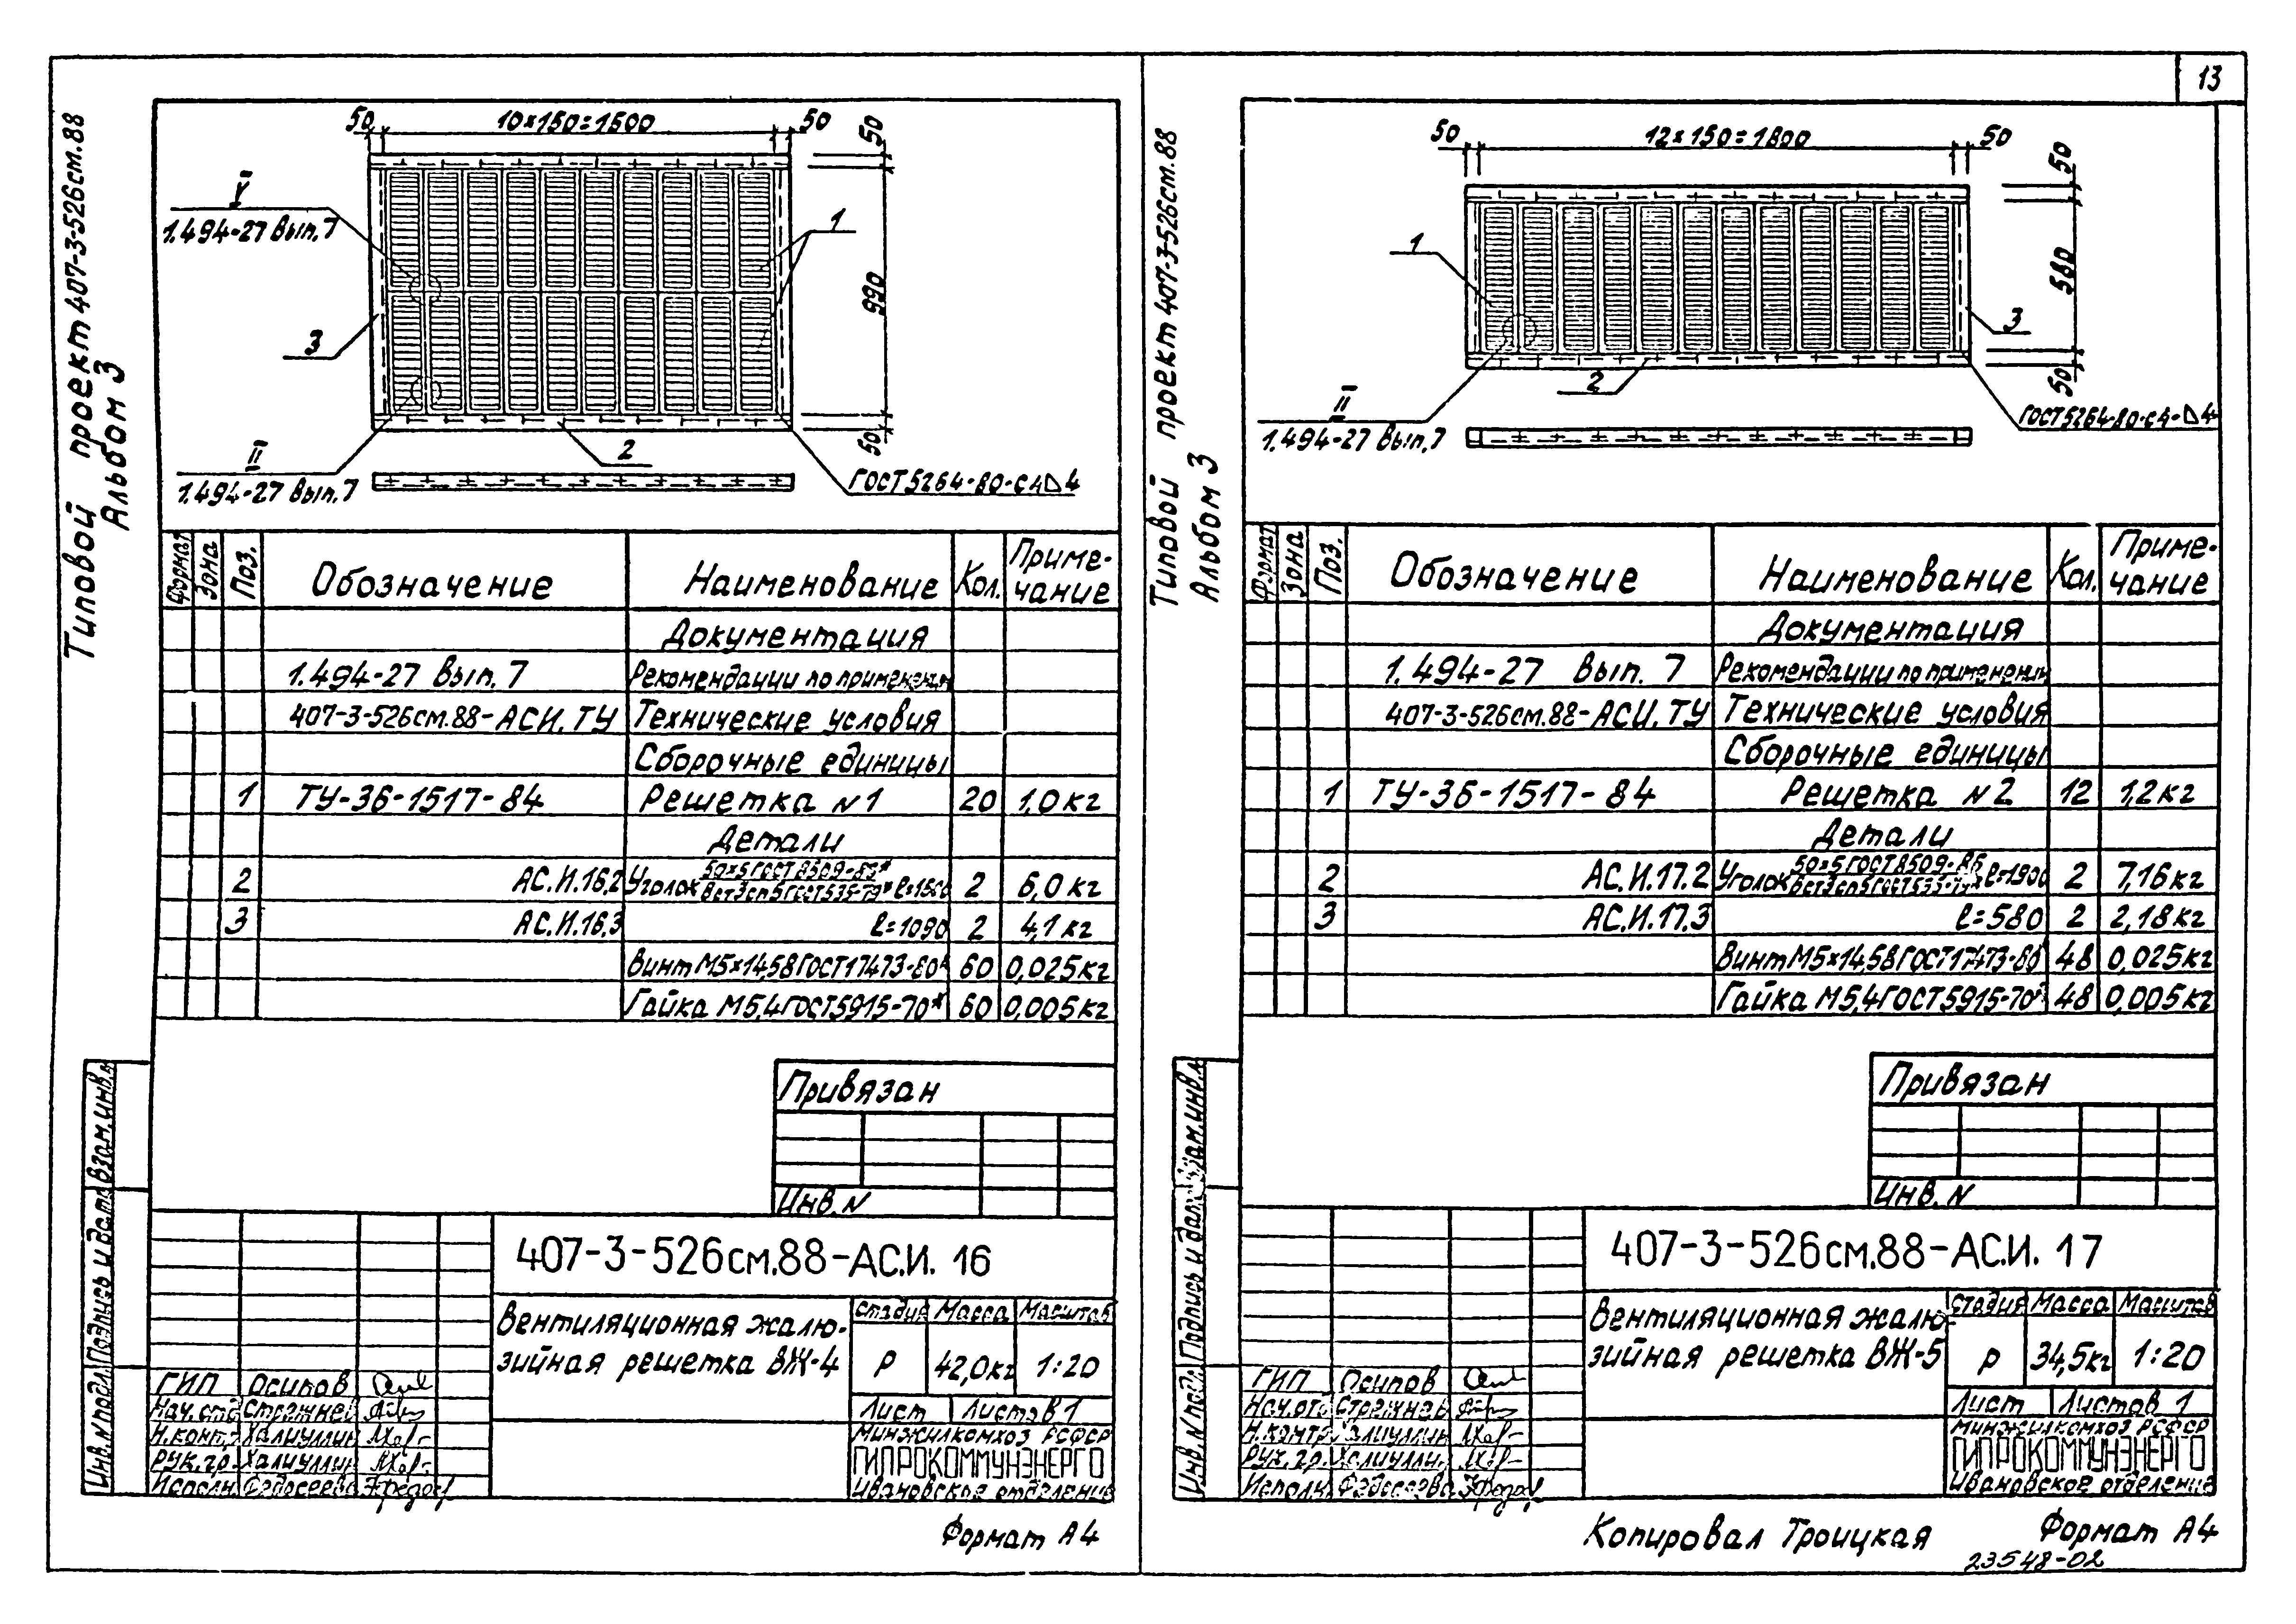 13
Типовой проект 407-3-526см.88
Альбом 3
50 10×150=1500 50
50
990
50
V
1.494-27 Вып. 7
1
3
II
1.494-27 Вып. 7
2
ГОСТ 5264-80-С4 4
Формат Зона Поз. Обозначение Наименование Кол. Приме-
чание
Документация
1.494-27 Вып. 7 Рекомендации по применению
407-3-526см.88-АСИ.ТУ Технические условия
Сборочные единицы
1 ТУ-36-1517-84 Решетка N1 20 1,0 кг
Детали
2 АС.И.16.2 Уголок 50×5 ГОСТ 8509- 2 6,0 кг
Вст3сп5 ГОСТ 535-79*
3 АС.И.16.3 ℓ=1090 2 4,1 кг
Винт М5×14,58 ГОСТ 17473-80 60 0,025кг
Гайка М5,4 ГОСТ 5915-70* 60 0,005кг
Привязан
Инв. N
Взам.инв.
Подпись и дата
Инв. N подл.
407-3-526см.88-АС.И. 16
Вентиляционная жалю-
зийная решетка ВЖ-4
Стадия Масса Масштаб
Р 42,0кг 1:20
Лист Листов 1
Минжилкомхоз РСФСР
ГИПРОКОММУНЭНЕРГО
Ивановское отделение
ГИП Осипов
Нач.отд Стрежнев
Н.конт. Халиуллин
Рук.гр. Халиуллин
Исполн. Федосеева
Формат А4
Типовой проект 407-3-526см.88
Альбом 3
50 12×150=1800 50
50
580
50
1
3
2
II
1.494-27 Вып. 7
ГОСТ 5264-80-С4- 4
Формат Зона Поз. Обозначение Наименование Кол. Приме-
чание
Документация
1.494-27 Вып. 7 Рекомендации по применению
407-3-526см.88-АСИ.ТУ Технические условия
Сборочные единицы
1 ТУ-36-1517-84 Решетка N2 12 1,2кг
Детали
2 АС.И.17.2 Уголок 50×5 ГОСТ 8509-86 ℓ=1900 2 7,16кг
Вст3сп5 ГОСТ 535-79*
3 АС.И.17.3 ℓ=580 2 2,18кг
Винт М5×14,58 ГОСТ 17473-80 48 0,025кг
Гайка М5,4 ГОСТ 5915-70* 48 0,005кг
Привязан
Инв. N
Взам.инв.
Подпись и дата
Инв. N подл.
407-3-526см.88-АС.И. 17
Вентиляционная жалю-
зийная решетка ВЖ-5
Стадия Масса Масштаб
Р 34,5кг 1:20
Лист Листов 1
Минжилкомхоз РСФСР
ГИПРОКОММУНЭНЕРГО
Ивановское отделение
ГИП Осипов
Нач.отд Стрежнев
Н.контр Халиуллин
Рук.гр. Халиуллин
Исполн. Федосеева
Копировал Троицкая Формат А4
23548-02